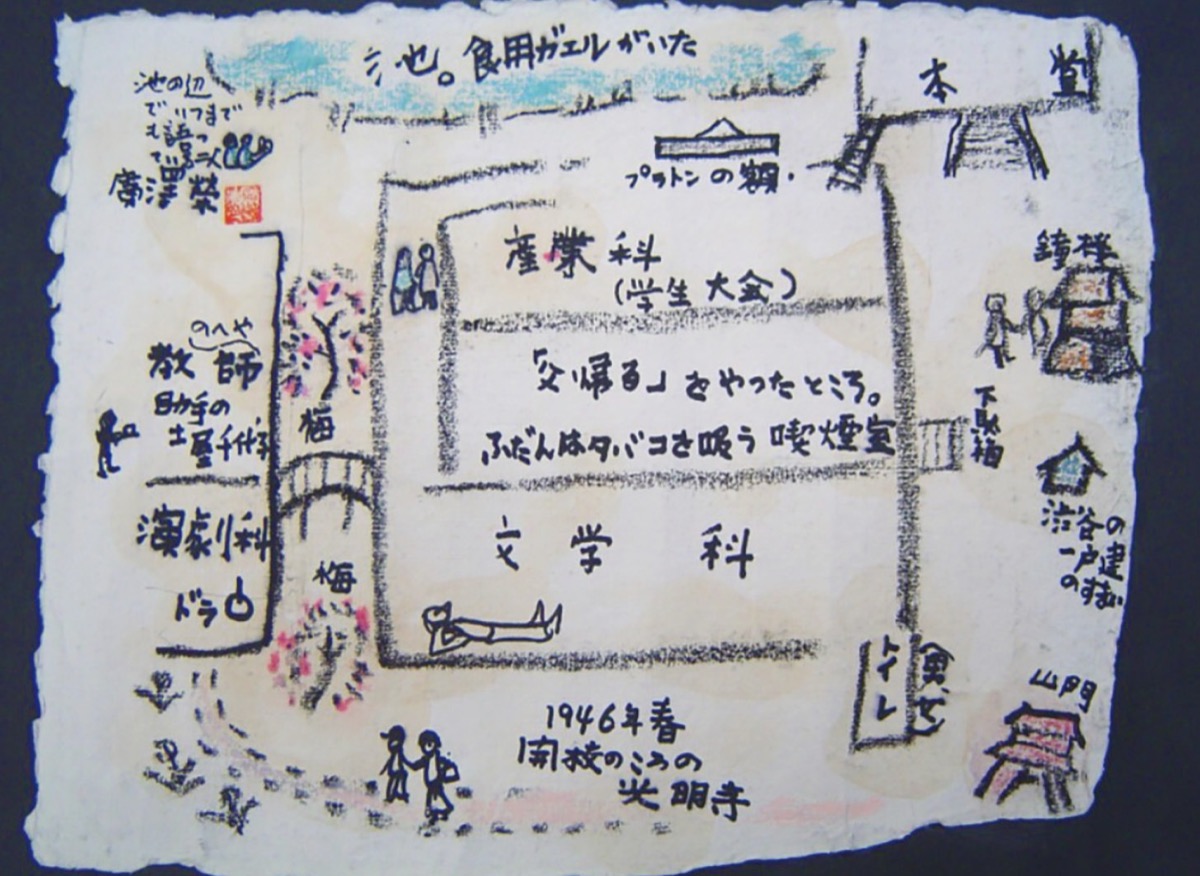 池。食用ガエルがいた
本堂
池の辺
でいつまで
も語っ
廣澤榮
プラトンの額.
産業科
(学生大会)
鐘楼
「父帰る」をやったところ。
ふだんはタバコを吸う喫煙室
のへや
教師
助手の
土屋千代子
梅
下駄箱
演劇科
ドラ
梅
文学科
渋谷の
一戸建
のすまい
トイレ
(男、女)
山門
1946年春
開校のころの
光明寺